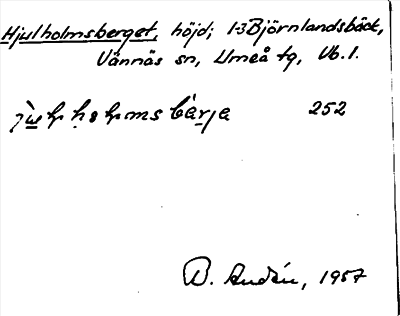 Hjulholmsberget, höjd; 1-3 Björnlandsbäck,
Vännäs sn, Umeå tg, Vb. l.
252
D. 1957